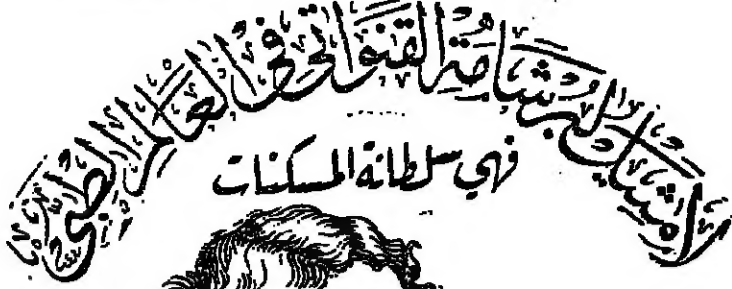 لا مثيل لبرشامة القنواتي في العالم الطبي
فهي سلطانة المسكنات